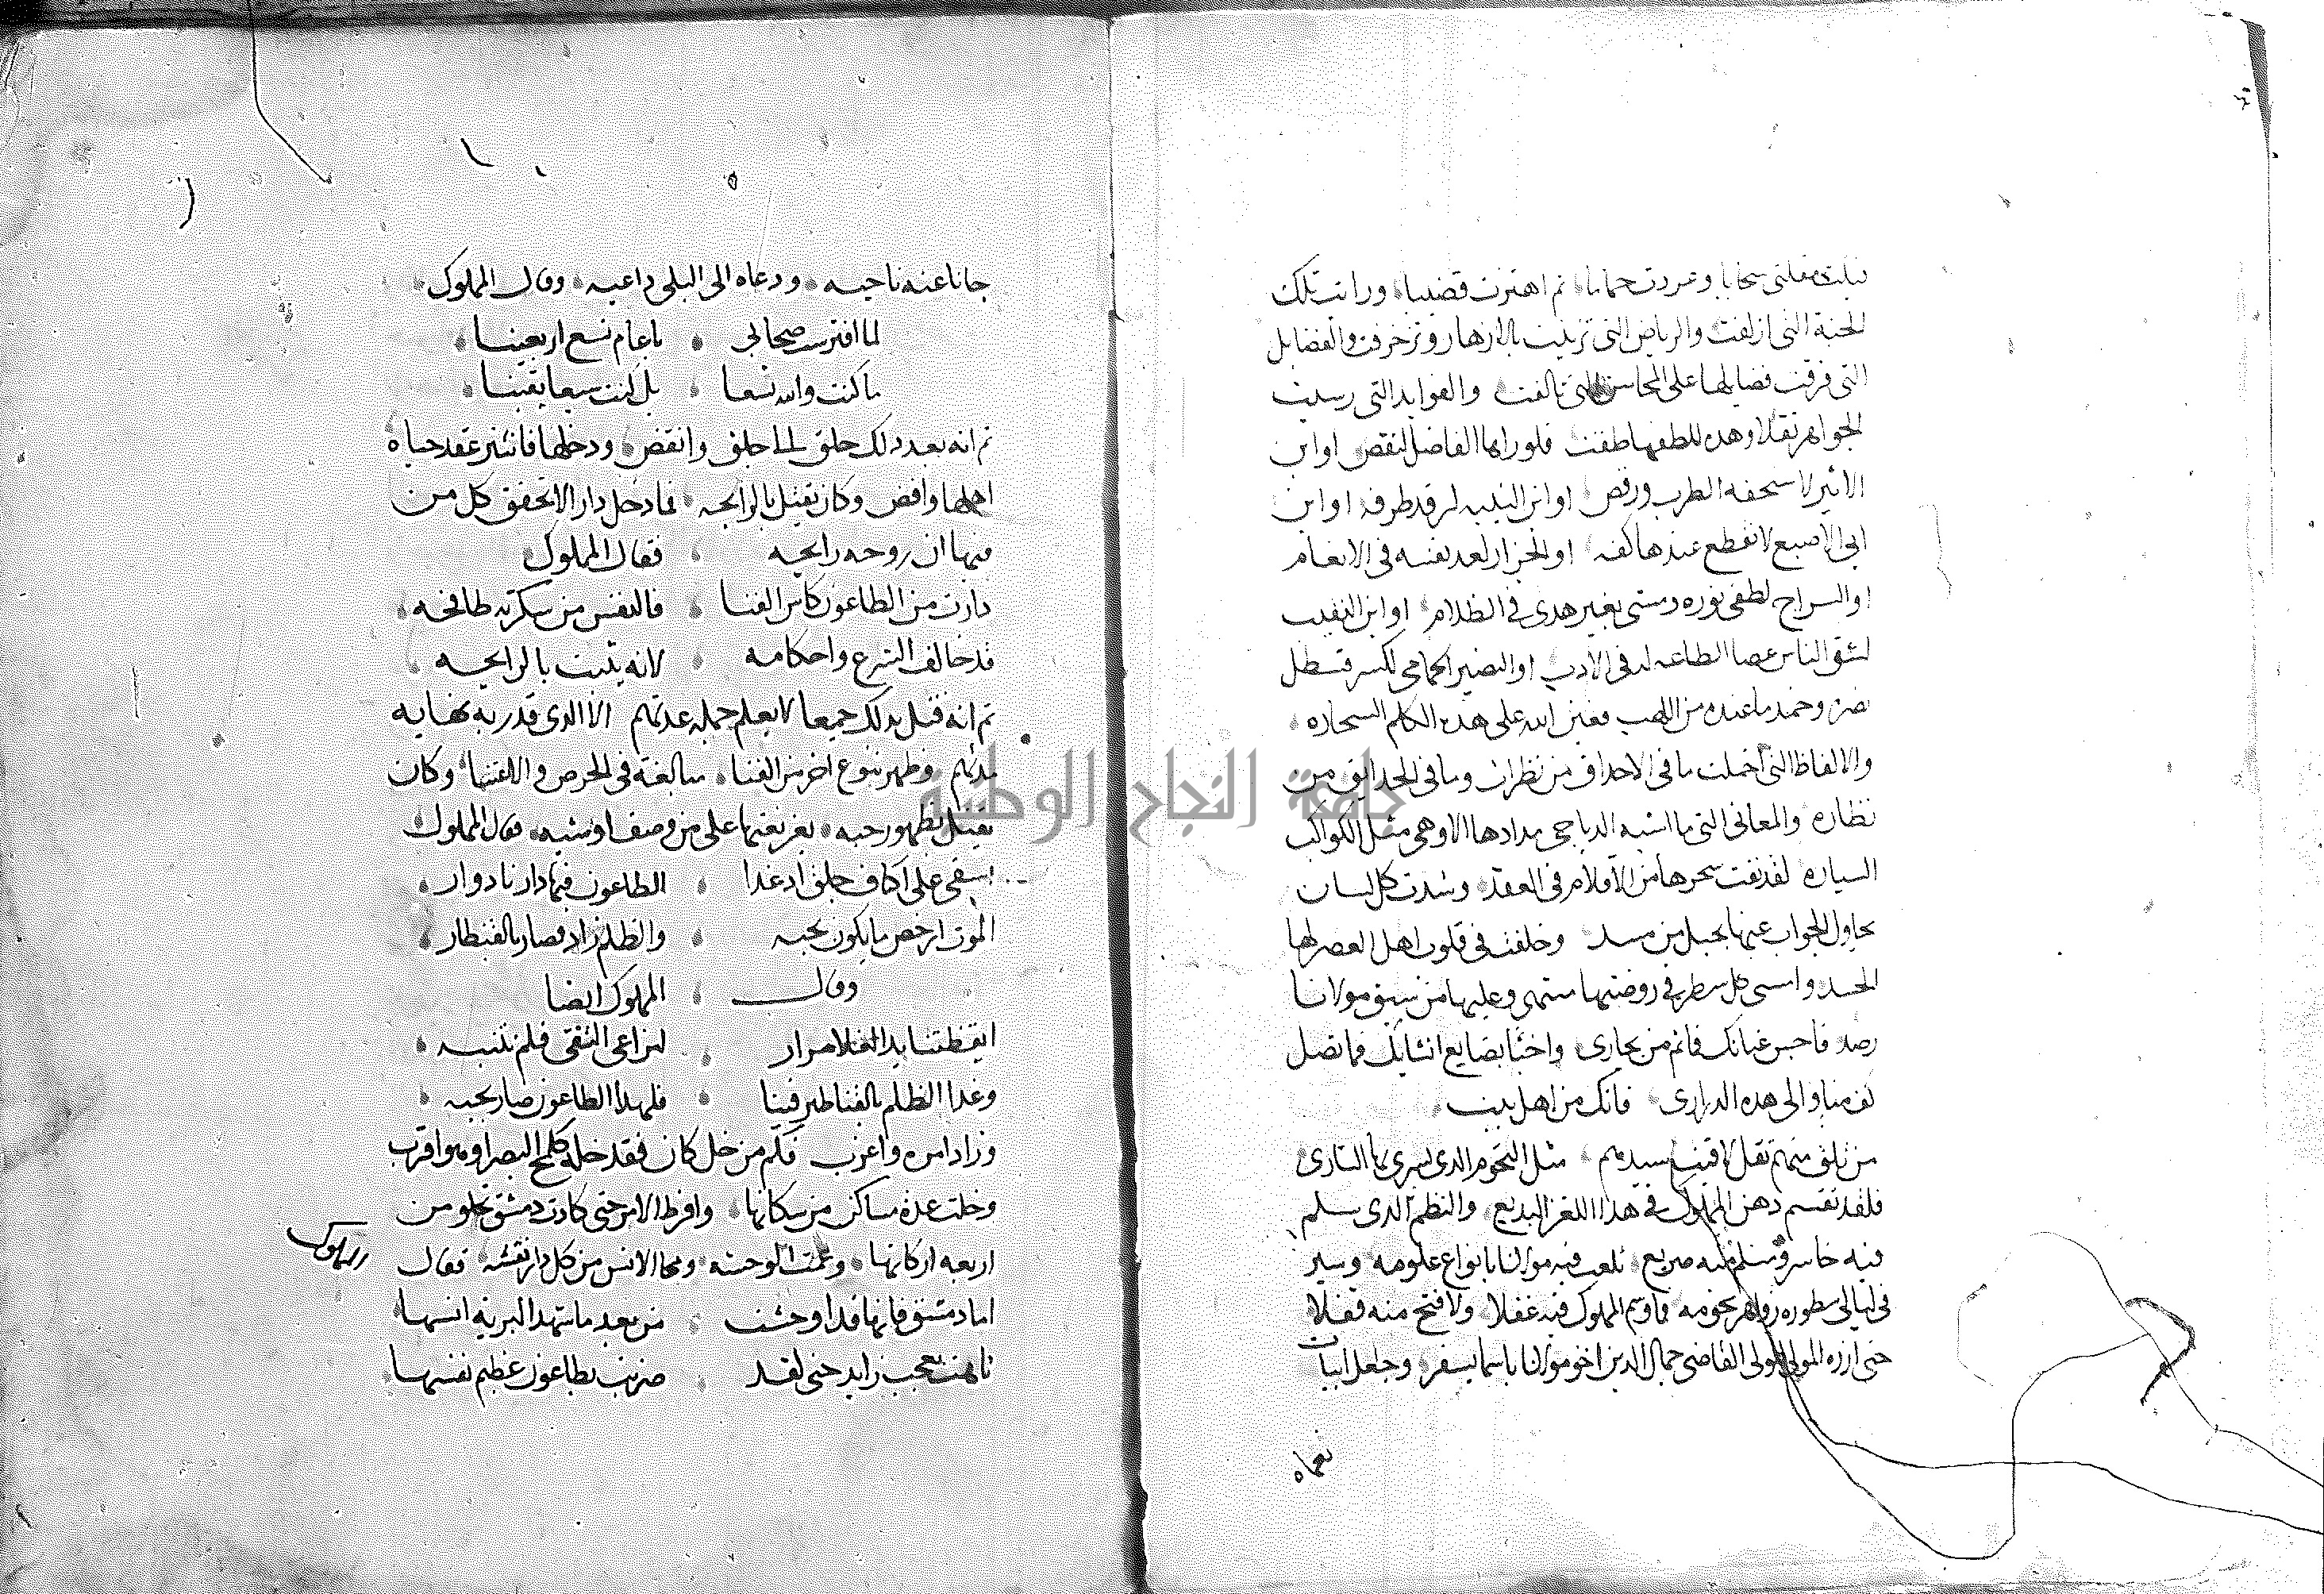 الجنة التى ازلفت والرياض التى تزينت بالازهار وتزخرفت والفضايل
التى فرقت فضايلها على المحاسن التى تالفت والفوايد التى
الجواهر ثقلا وهذه للطفها طفت فلو راها الفاضل لنقص او ابن
الاثير لاستخفه الطرب ورقص او ابن النبيه لرقد طرفه او ابن
ابى الاصبع لانقطع عندها كفه او الجزار لعد نفسه فى الانعام
او السراج لطفى نوره ومشى بغير هدى فى الظلام او ابن النقيب
لشق الناس عصا الطاعه له فى الادب او النصير الحمامى لكسر
وخمد ما عنده من اللهب فعين الله على هذه الكلم السحاره
والالفاظ التى اخملت ما فى الاحداق من نظرات وما فى الحدايق من
نظاره والمعانى التى ما اشبه الدياجى مدادها الا وهى مثل الكواكب
السياره لقد نفثت سحرها من الاقلام فى العقد وشدت كل لسان
يحاول الجواب عنها بحبل من مسد وخلفت فى قلوب اهل العصر لها
الحسد وامسى كل سطر فى روضتها وعليها من مولانا
رصد فاحبس عنانك فما ثم من يجارى واخبا بضايع انشايك فما تصل
كف الى هذه الدرارى فانك من اهل بيت
من تلق منهم تقل لاقيت سيدهم مثل النجوم الذى يسرى بها السارى
فلقد تقسم ذهن المملوك فى هذا اللغز البديع والنظم الذى سلم
فيه خاسر ومسلم فيه صريع تلعب فيه مولانا بانواع علومه وسير
فى ليالى سطوره زواهر نجومه فما وسم المملوك فيه غفلا ولا فتح منه قفلا
حتى ارزه المولى المولى القاضى جمال الدين اخو مولانا باسما يسفر وجعل ابيات
جانا عنه ناحيه ودعاه الى البلى داعيه وقال المملوك
لما افترست صحابى يا عام تسع اربعينا
ما كنت والله تسعا بل كنت سبعا يقينا
ثم انه بعد ذلك حلق الى جلق وانقض ودخلها فانتثر عقد حياة
اهلها وافض وكان يقتل بالرايحه فما دخل دارا الا تحقق كل من
فيها ان روحه رايحه فقال المملوك
دارت من الطاعون كاس الفنا فالنفس من سكرته طافحه
قد خالف الشرع واحكامه لانه يثبت بالرايحه
ثم انه قتل بذلك جميعا لا يعلم جمله عدتهم الا الذى قدر به نهايه
مدتهم وظهر بنوع اخر من الفنا مبالغة فى الحرص والاعتنا وكان
يقتل بظهور حبه يعز نعتها على من وصف او شبه فقال المملوك
اسفى على اكناف جلق اذ غدا الطاعون فيها دار نادوار
الموت ارخص ما يكون بحبه والظلم زاد فصار بالقنطار
وقال المملوك ايضا
ايقظتنا يد العلا مرار لنراعى التقى فلم ننتبه
وغدا الظلم بالقناطير فينا فلهذا الطاعون صار بحبه
وزاد امره واغرب فكم من خل كان فقد خله كلمح البصر او هو اقرب
وخلت عدة مساكن من سكانها وافرط الامر حتى كادت دمشق تخلو من
اربعه اركانها وعمت الوحشه ومحا الانس من كل دار نقشه فقال
المملوك
اما دمشق فانها قد اوحشت من بعد ما شهد البريه انسها
تاهت بعجب زايد حتى لقد ضربت بطاعون عظيم نفسها